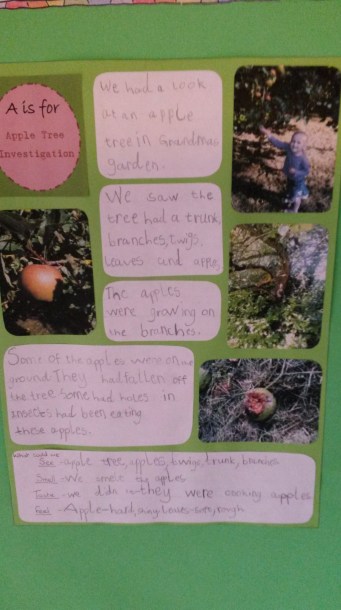 A is for
Apple Tree
Investigation
We had a look
at an apple
tree in Grandmas
garden.
We saw the
tree had a trunk,
branches, twigs,
leaves and apples
The apples
were growing on
the branches.
Some of the apples were on the
ground They had fallen off
the tree Some had holes in
insects had been eating
these apples.
What could we
See - apple tree, apples, twigs, trunk, branches
Smell - We apples
Taste - we didn they were cooking apples
Feel - Apple - hard, leaves - soft, rough